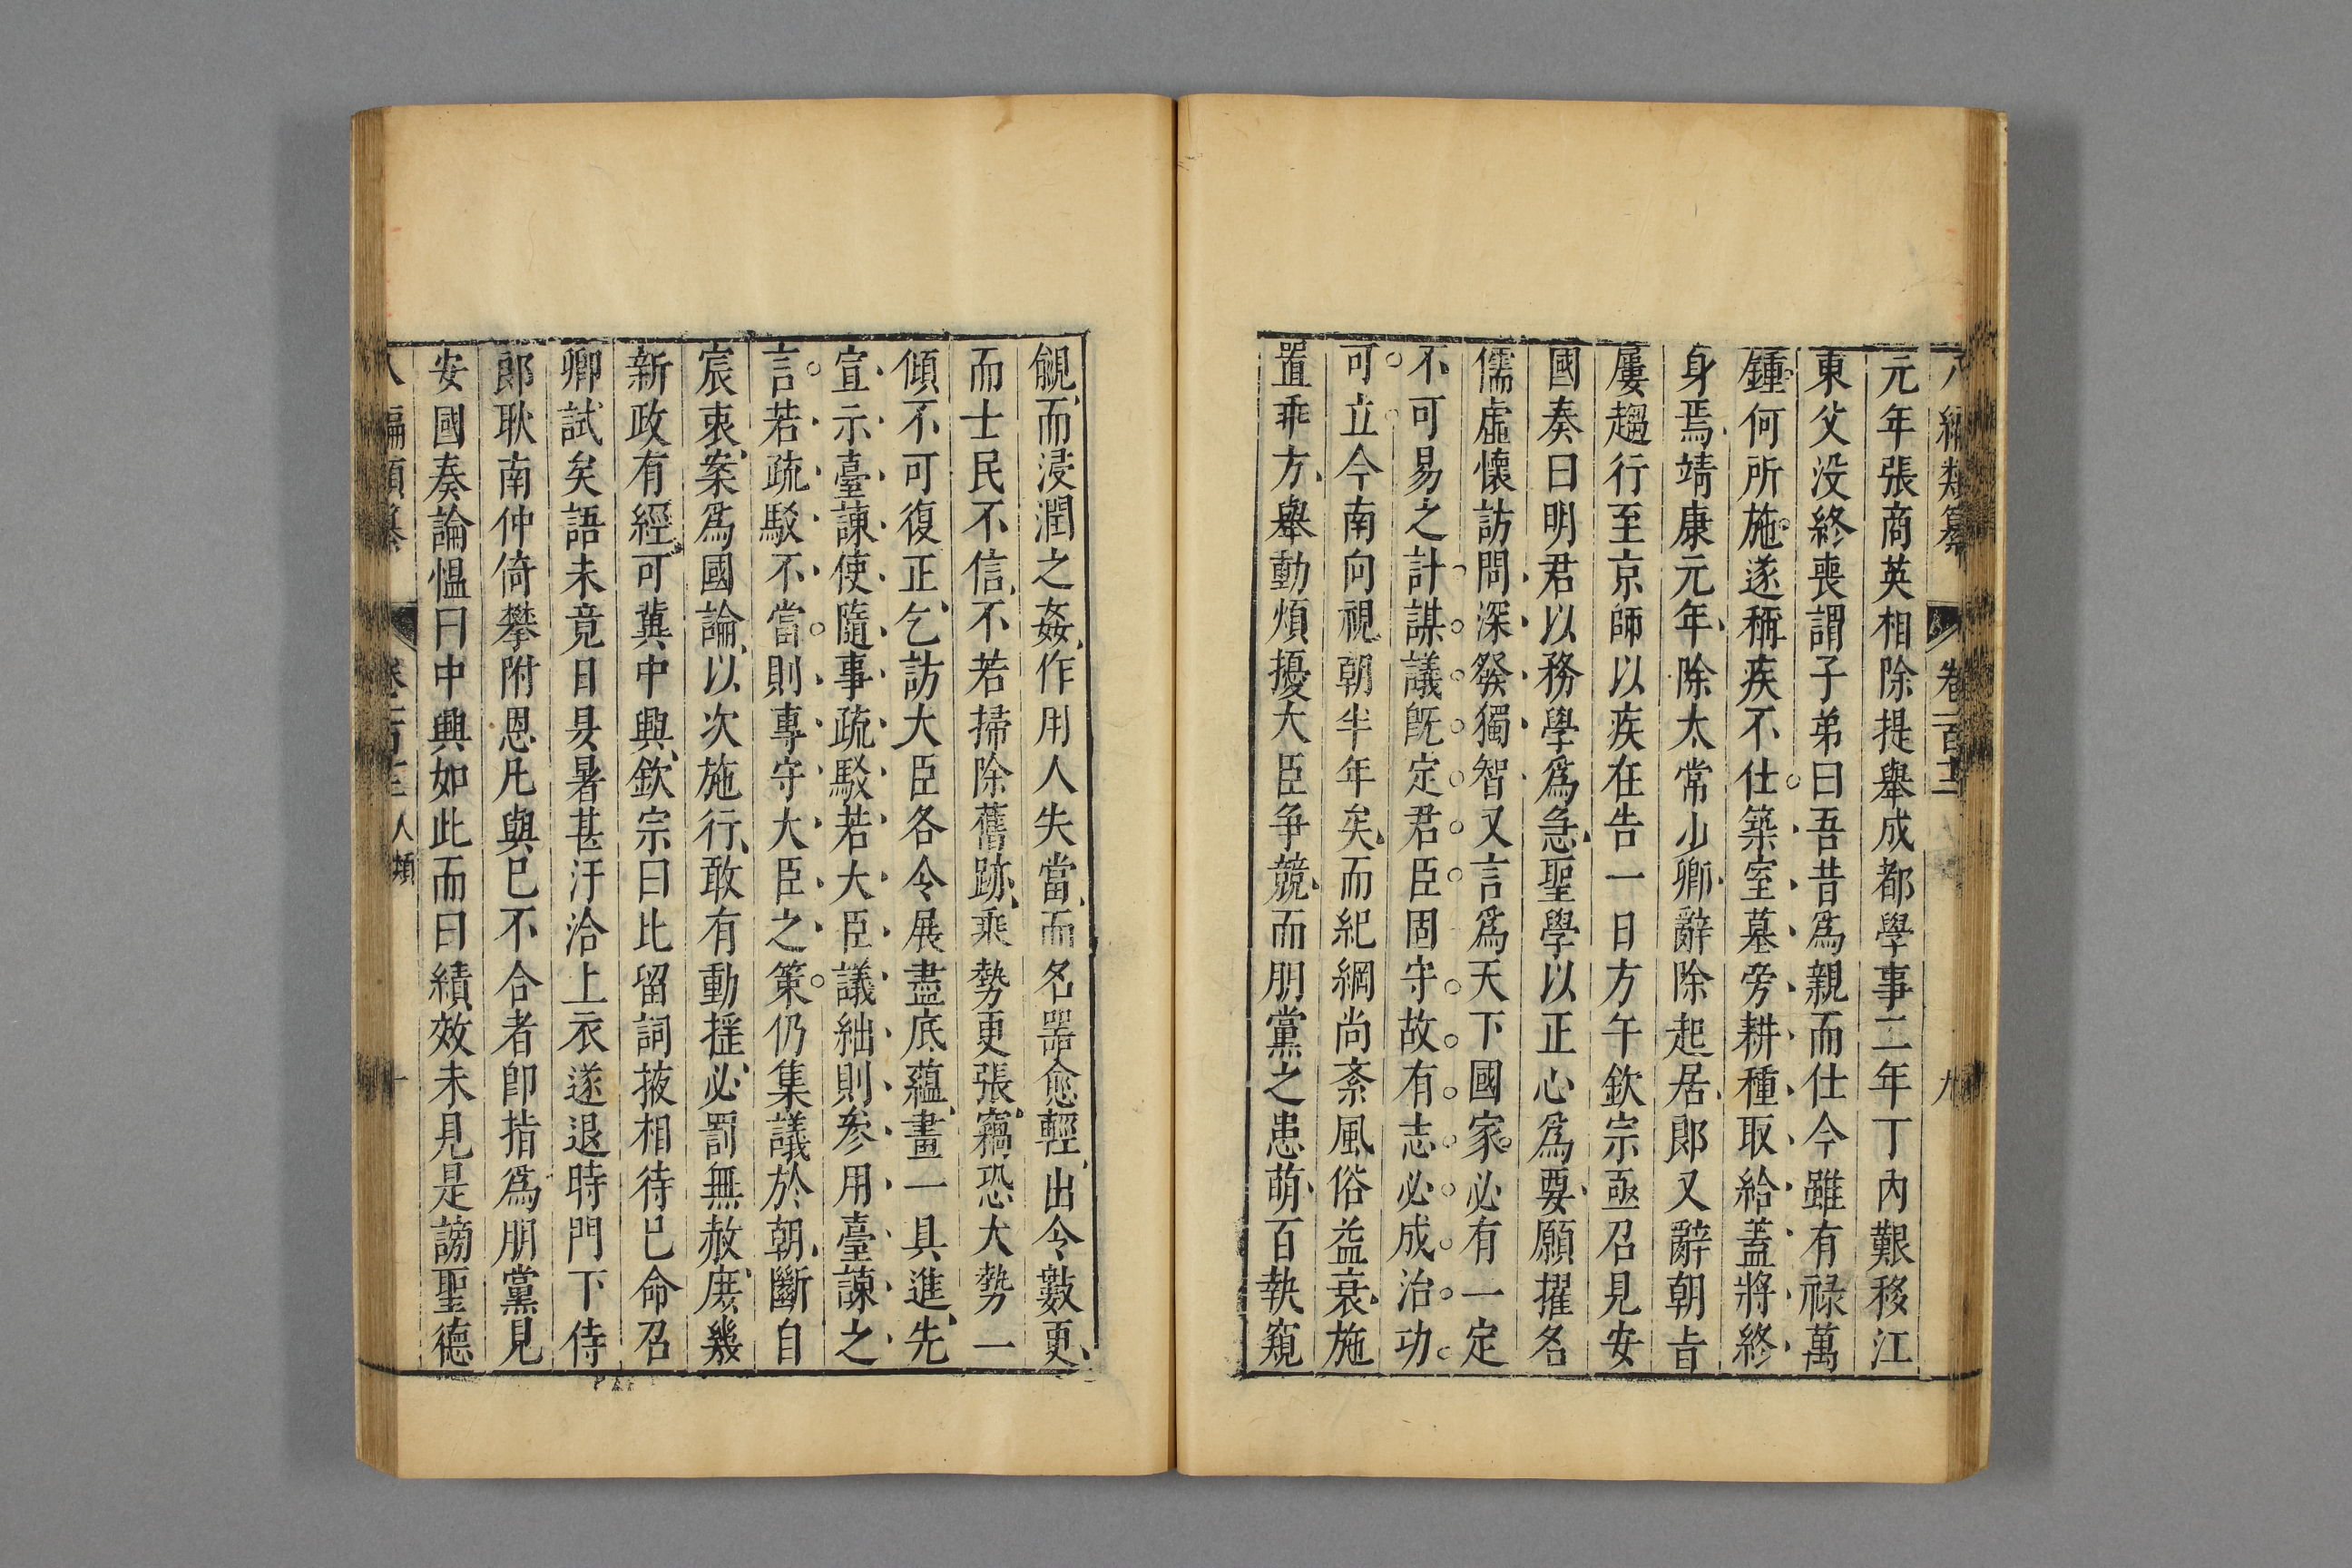 編類纂 卷一百 九
元年張商英相除提舉成都學事二年丁內艱移江
東父没終喪謂子弟曰吾昔爲親而仕今雖有禄萬
鍾何所施遂稱疾不仕築室墓旁耕種取給蓋將終
身焉靖康元年除太常少卿辭除起居郎又辭朝旨
屢趨行至京師以疾在告一日方午欽宗亟召見安
國奏曰明君以務學爲急聖學以正心爲要願擢名
儒虛懷訪問深發獨智又言爲天下國家必有一定
不可易之計謀議旣定君臣固守故有志必成治功
可立今南向視朝半年矣而紀綱尚紊風俗益衰施
置乖方舉動煩擾大臣爭競而朋黨之患萌百執窺
覦而浸潤之姦作用人失當而名器愈輕出令數更
而士民不信不若掃除舊跡乘勢更張竊恐大勢一
傾不可復正乞訪大臣各令展盡底蘊畫一具進先
宣示臺諫使隨事疏駁若大臣議絀則參用臺諫之
言若疏駁不當則專守大臣之策仍集議於朝斷自
宸衷案爲國論以次施行敢有動搖必罰無赦庶幾
新政有經可冀中興欽宗曰比留詞掖相待已命召
卿試矣語未竟日昃暑甚汗洽上衣遂退時門下侍
郎耿南仲倚攀附恩凡與已不合者卽指爲朋黨見
安國奏論愠曰中興如此而曰績效未見是謗聖德
人類